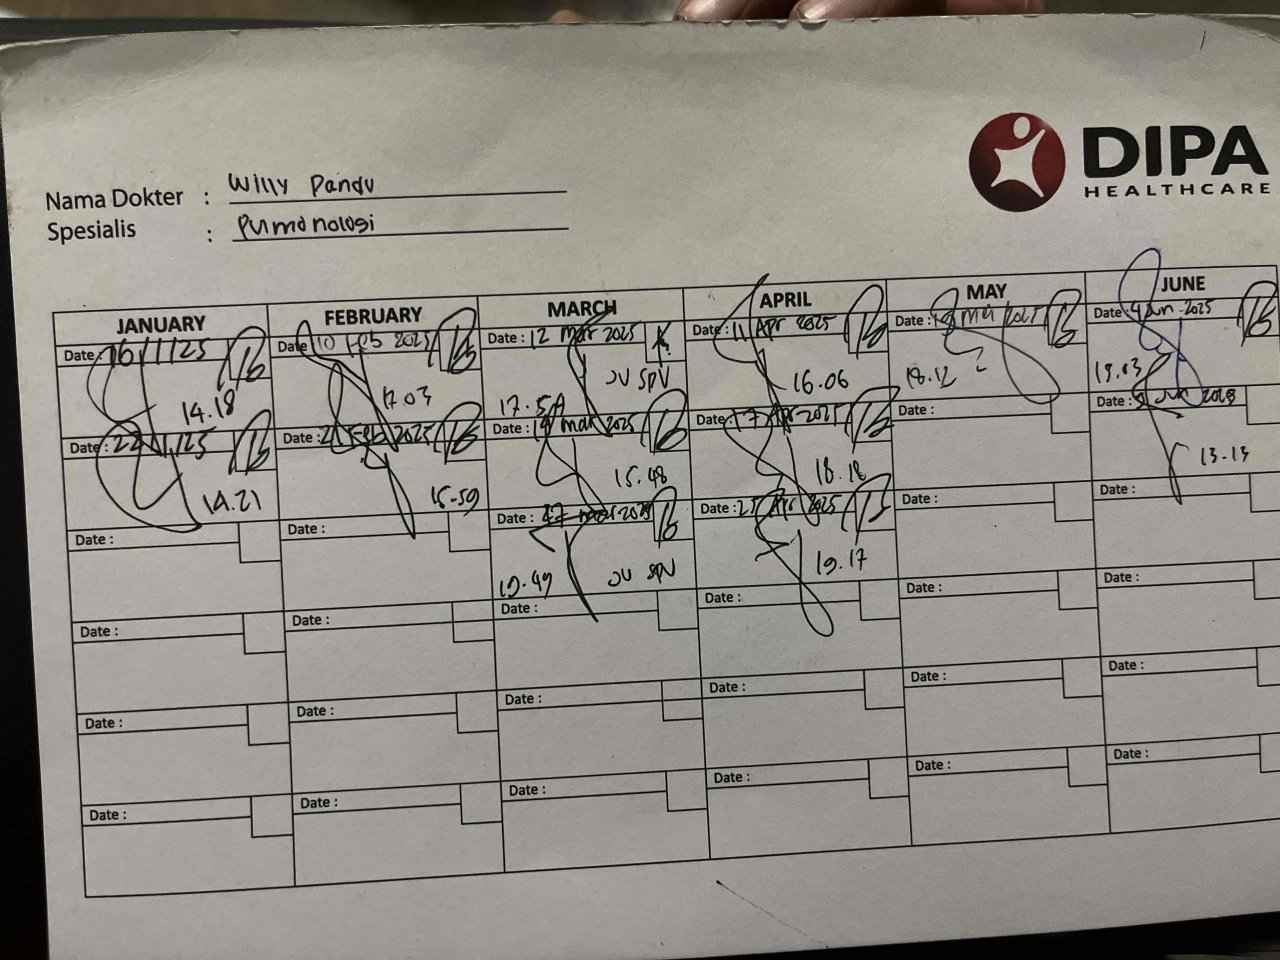 DIPA
HEALTHCARE
Nama Dokter : Willy Pandu
Spesialis : Pumonologi
JANUARY FEBRUARY MARCH APRIL MAY JUNE
Date: 16/1/25 Date: 10 Feb 2025 Date: 12 Mar 2025 Date: 11 Apr 2025 Date: Mei 2025 Date: 4 Jun 2025
14.18 17.03 JV SPV 17.5A 16.06 18.12
Date: 22/1/25 Date: Feb 2025 Date: mar 2025 Date: 17 Apr 2025 Date: Date: Jun
14.21 15-59 15.48 18.18 13.13
Date: Date: Date: 27 mar 2025 Date: Apr 2025 Date: Date:
19.49 JV SPV 19.17
Date: Date: Date: Date: Date: Date:
Date: Date: Date: Date: Date: Date:
Date: Date: Date: Date: Date: Date: